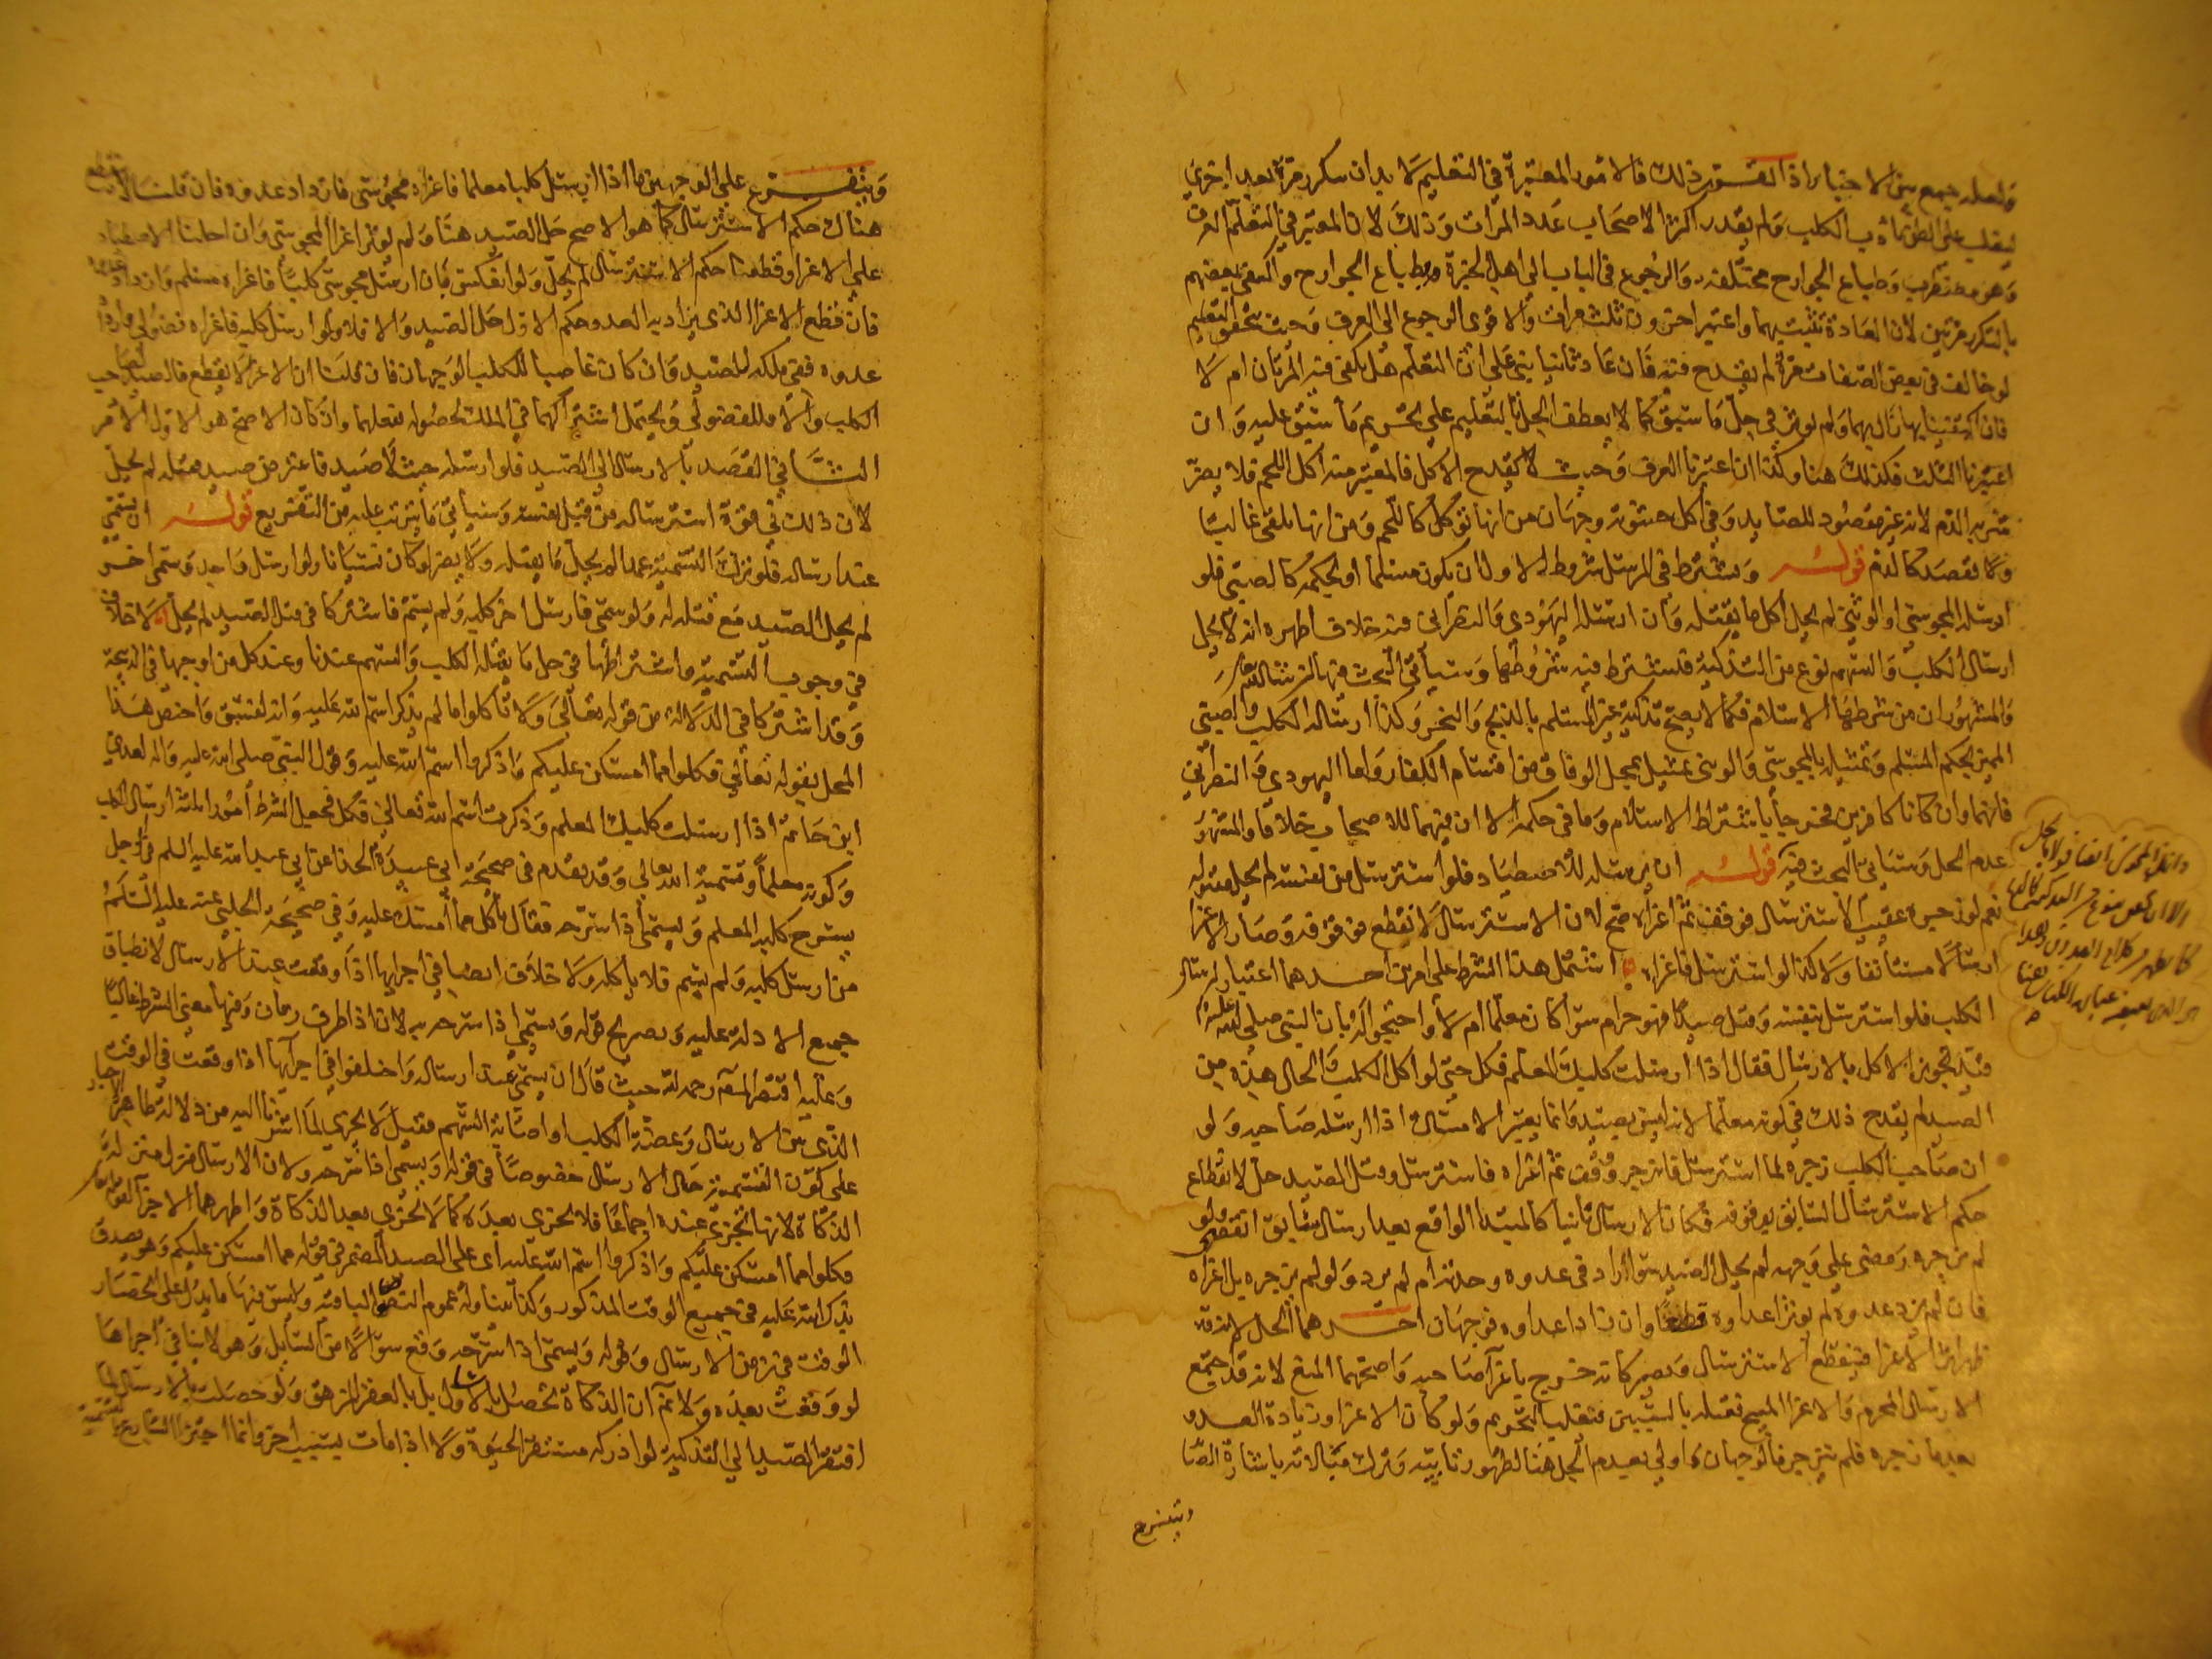 ولعله جمع بين الاخبار اذا تقرر ذلك فالامور المعتبرة في التعليم لا بد ان يتكرر مرة بعد اخرى
ليغلب على الظن تأدب الكلب ولم يقدر اكثر الاصحاب عدد المرات وذلك لان المعتبر في التعلم العرف
وهو مضطرب وطباع الجوارح مختلفة والرجوع في الباب الى اهل الخبرة بطباع الجوارح واكتفى بعضهم
بالتكرر مرتين لان العادة تثبت بهما واعتبر اخرون ثلث مرات والاقوى الرجوع الى العرف وحيث تحقق التعليم
لو خالف في بعض الصفات مرة لم يقدح فيه فان عاد ثانيا بني على ان التعلم هل يكفي فيه المرتان ام لا
فان اكتفينا بهما زال بهما ولم يؤثر في حل ما سبق كما لا يعطف الحل بالتعليم على تحريم ما سبق عليه وان
اعتبرنا الثلث فكذلك هنا وكذا ان اعتبرنا العرف وحيث لا يقدح الاكل فالمعتبر منه اكل اللحم فلا يضر
شربه الدم لانه غير مقصود للصائد وفي اكل حشوته وجهان من انها تؤكل كاللحم ومن انها تلقى غالبا
ولا تقصد كالدم قوله ويشترط في المرسل شروط الاول ان يكون مسلما او بحكمه كالصبي فلو
ارسله المجوسي او الوثني لم يحل اكل ما يقتله وان ارسله اليهودي والنصراني فيه خلاف اظهره انه لا يحل
ارسال الكلب والسهم نوع من التذكية فيشترط فيه شروطها وسيأتي البحث فيها ان شاء الله تعالى
والمشهور ان من شرطها الاسلام فكما لا يصح تذكية غير المسلم بالذبح والنحر وكذا ارساله الكلب والصبي
المميز بحكم المسلم وتمثيله بالمجوسي والوثني تمثيل بمحل الوفاق من اقسام الكفار واما اليهودي والنصراني
فانهما وان كانا كافرين فخرجا باشتراط الاسلام وما في حكمه الا ان فيهما للاصحاب خلافا والمشهور
عدم الحل وسيأتي البحث فيه قوله ان يرسله للاصطياد فلو استرسل من نفسه لم يحل مقتوله
نعم لو زجره عقيب الاسترسال فوقف ثم اغراه صح لان الاسترسال انقطع بوقوفه وصار الاغراء
ارسالا مستأنفا ولا كذا لو استرسل فاغراه اشتمل هذا الشرط على امرين احدهما اعتبار ارسال
الكلب فلو استرسل بنفسه وقتل صيدا فهو حرام سواء كان معلما ام لا واحتجوا له بان النبي صلى الله عليه وآله
قيد تجويز الاكل بالارسال فقال اذا ارسلت كلبك المعلم فكل حتى لو اكل الكلب والحال هذه من
الصيد لم يقدح ذلك في كونه معلما لانه ليس بصيد وانما يعتبر الامساك اذا ارسله صاحبه ولو
ان صاحب الكلب زجره لما استرسل فانزجر ووقف ثم اغراه فاسترسل وقتل الصيد حل لانقطاع
حكم الاسترسال السابق بوقوفه فكان الارسال ثانيا كالمبتدا الواقع بعد ارسال سابق انقطع ولو
لم ينزجر ومضى على وجهه لم يحل الصيد سواء زاد في عدوه وحدته ام لم يزد ولو لم يزجره بل اغراه
فان لم يزد عدوه لم يؤثر اغراؤه قطعا وان زاد اغراؤه فوجهان احدهما الحل لانه قد
ظهر اثر الاغراء فينقطع الاسترسال ويصير كانه خرج باغراء صاحبه واصحهما المنع لانه قد اجتمع
الارسال المحرم والاغراء المبيح فقتله بالسببين فيغلب التحريم ولو كان الاغراء وزيادة العدو
بعد ما زجره فلم ينزجر فالوجهان واولى بعدم الحل هنا لظهور تأبيه وترك مبالاته باشارة الصائد
ويتفرع
ويتفرع على الوجهين ما اذا ارسل كلبا معلما فاغراه مجوسي فازداد عدوه فان قلنا لا ينقطع
هناك حكم الاسترسال كما هو الاصح حل الصيد هنا ولم يؤثر اغراء المجوسي وان احلنا الاصطياد
على الاغراء وقطعنا حكم الاسترسال لم يحل ولو انعكس بان ارسل مجوسي كلبا فاغراه مسلم وازداد عدوه
فان قطع الاغراء الذي يزاد به العدو حكم الاول حل الصيد والا فلا ولو ارسل كلبه فاغراه فضولي فازداد
عدوه ففي ملكه للصيد وان كان غاصبا للكلب الوجهان فان قلنا ان الاغراء لا يقطع فالصيد لصاحب
الكلب والا فللفضولي ويحتمل اشتراكهما في الملك لحصوله بفعلهما وان كان الاصح هو الاول الامر
الثاني القصد بالارسال الى الصيد فلو ارسله حيث لا صيد فاعترض صيد فقتله لم يحل
لان ذلك في قوة استرساله من قبل نفسه وسيأتي ما يترتب عليه من التفريع قوله ان يسمي
عند ارساله فلو ترك التسمية عمدا لم يحل ما يقتله ولا يضر لو كان نسيانا ولو ارسل واحد وسمى اخر
لم يحل الصيد مع قتله له ولو سمى فارسل اخر كلبه ولم يسم فاشتركا في قتل الصيد لم يحل لا خلاف
في وجوب التسمية واشتراطها في حل ما يقتله الكلب والسهم عندنا وعند كل من اوجبها في الذبيحة
وقد اشتركا في الدلالة من قوله تعالى ولا تاكلوا مما لم يذكر اسم الله عليه وانه لفسق واختص هذا
المحل بقوله تعالى فكلوا مما امسكن عليكم واذكروا اسم الله عليه وقول النبي صلى الله عليه واله لعدي
ابن حاتم اذا ارسلت كلبك المعلم وذكرت اسم الله تعالى فكل فجعل الشرط امورا ثلثة ارسال الكلب
وكونه معلما وتسمية الله تعالى وقد تقدم في صحيحة ابي عبيدة الحذا عن ابي عبد الله عليه السلم في الرجل
يسرح كلبه المعلم ويسمي اذا سرحه فقال يأكل مما امسك عليه وفي صحيحة الحلبي عنه عليه السلم
من ارسل كلبه ولم يسم فلا يأكله ولا خلاف ايضا في اجزائها اذا وقعت عند الارسال لانطباق
جميع الادلة عليه وتصريح قوله ويسمي اذا سرحه به لان اذا ظرف زمان وفيها معنى الشرط غالبا
وعليه اقتصر المصنف رحمه الله حيث قال ان يسمي عند ارساله واختلفوا في اجزائها اذا وقعت في الوقت
الذي بين الارسال وعضة الكلب او اصابة السهم فقيل لا يجزي لما اشرنا اليه من دلالة ظاهر الاخبار
على كون التسمية حال الارسال خصوصا في قوله ويسمي اذا سرحه ولان الارسال منزل منزلة
الذكاة لانها تجزي عنده اجماعا فلا تجزي بعده كما لا تجزي بعد الذكاة واظهرهما الاجزاء لقوله تعالى
فكلوا مما امسكن عليكم واذكروا اسم الله عليه اي على الصيد المضمر في قوله مما امسكن عليكم وهو يصدق
بذكر الله عليه في جميع الوقت المذكور وكذا يتناوله عموم النصوص الباقية وليس فيها ما يدل على انحصار
الوقت في زمن الارسال وقوله ويسمي اذا سرحه وقع سؤالا من السائل وهو لا ينافي اجزاها
لو وقعت بعده ولا نم ان الذكاة تحصل بالارسال بل بالعقر المزهق ولو حصلت بالارسال لما
افتقر الصيد الى التذكية لو ادركه مستقر الحيوة ولا اذا مات بسبب اخر وانما اجتزا الشارع بالتسمية